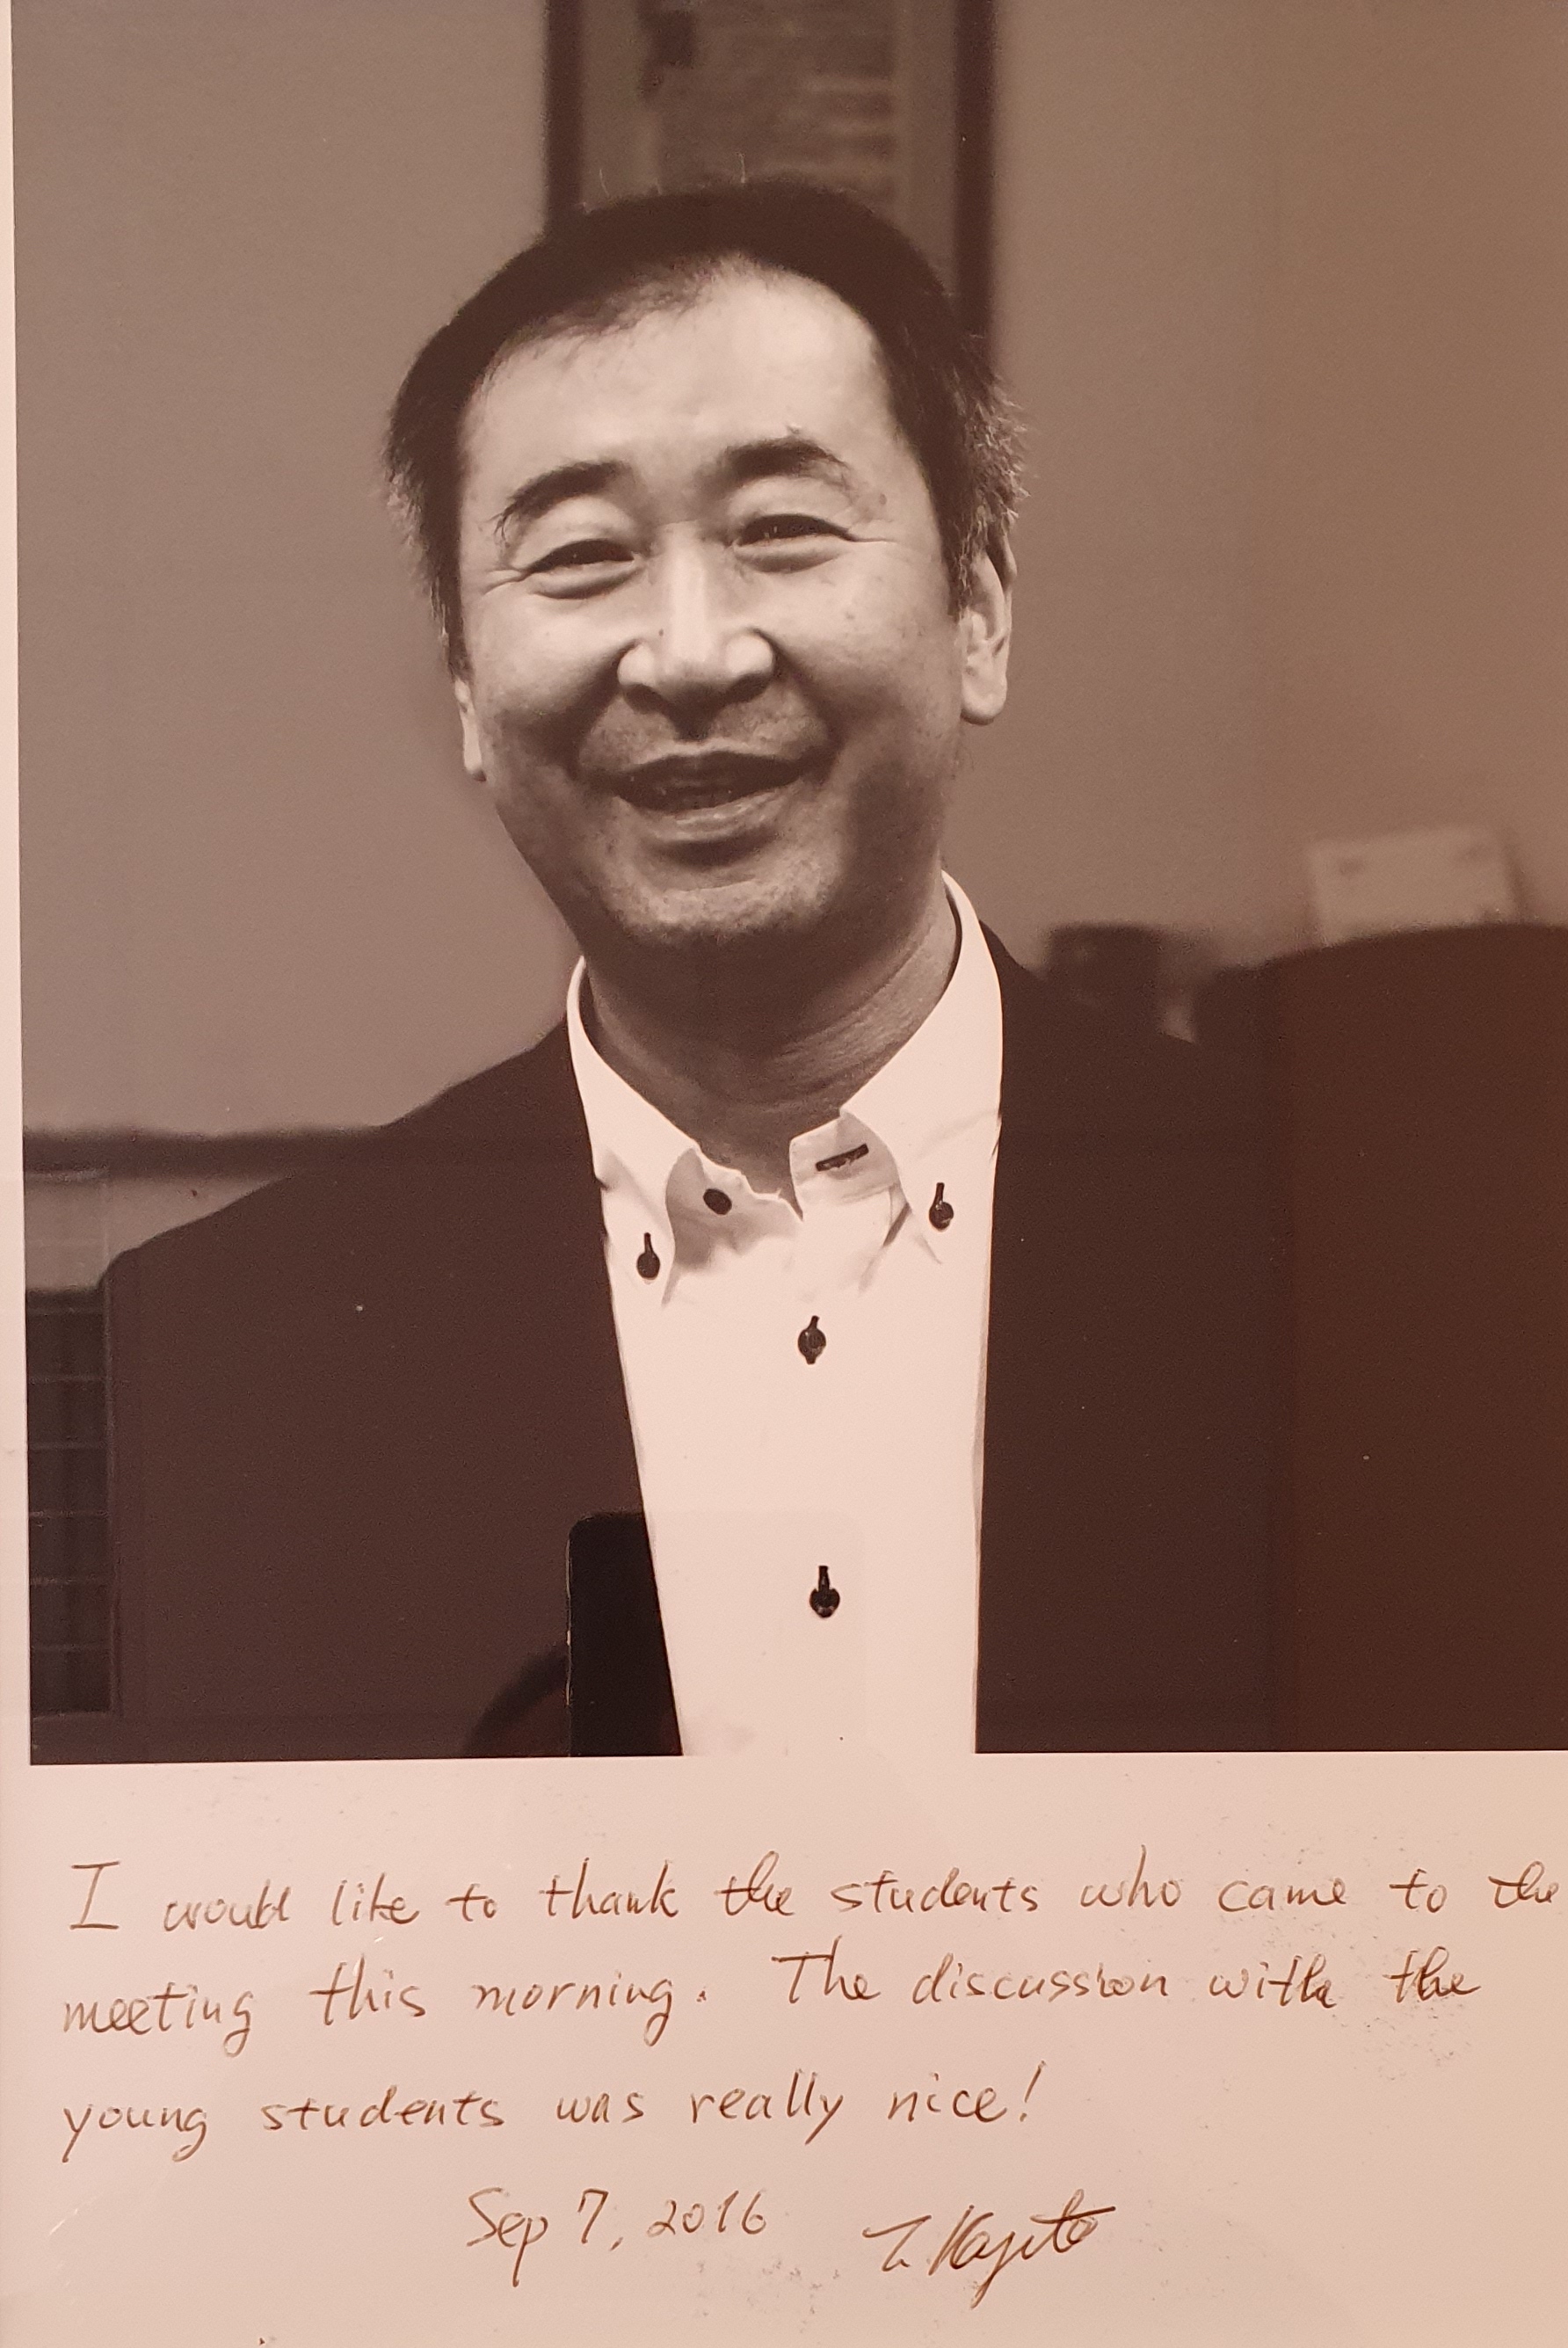 I would like to thank the students who came to the
meeting this morning. The discussion with the
young students was really nice!
Sep 7, 2016 T. Kajita